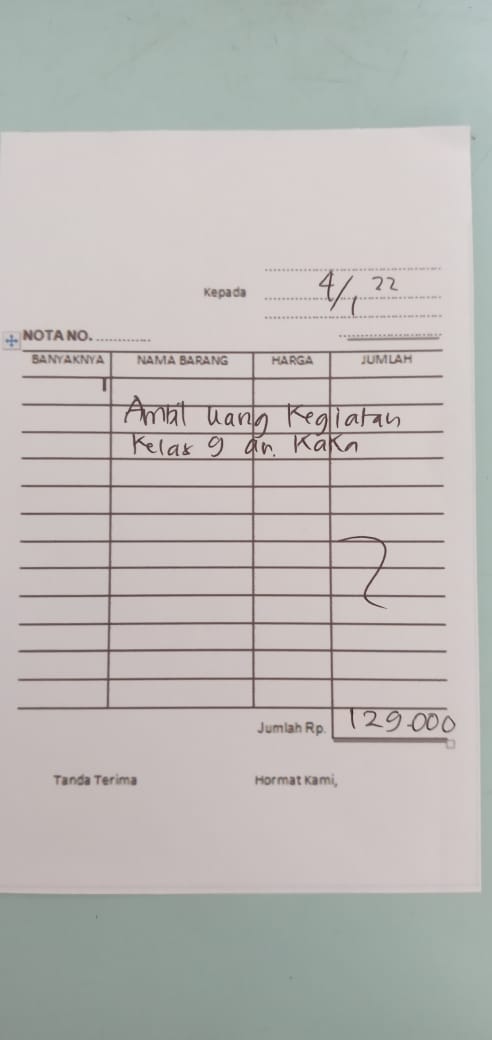 Kepada
4/1 22
NOTA NO. ..............
BANYAKNYA NAMA BARANG HARGA JUMLAH
Ambil uang Kegiatan
Kelas 9 an. Kaka
Jumlah Rp. 129.000
Tanda Terima Hormat Kami,